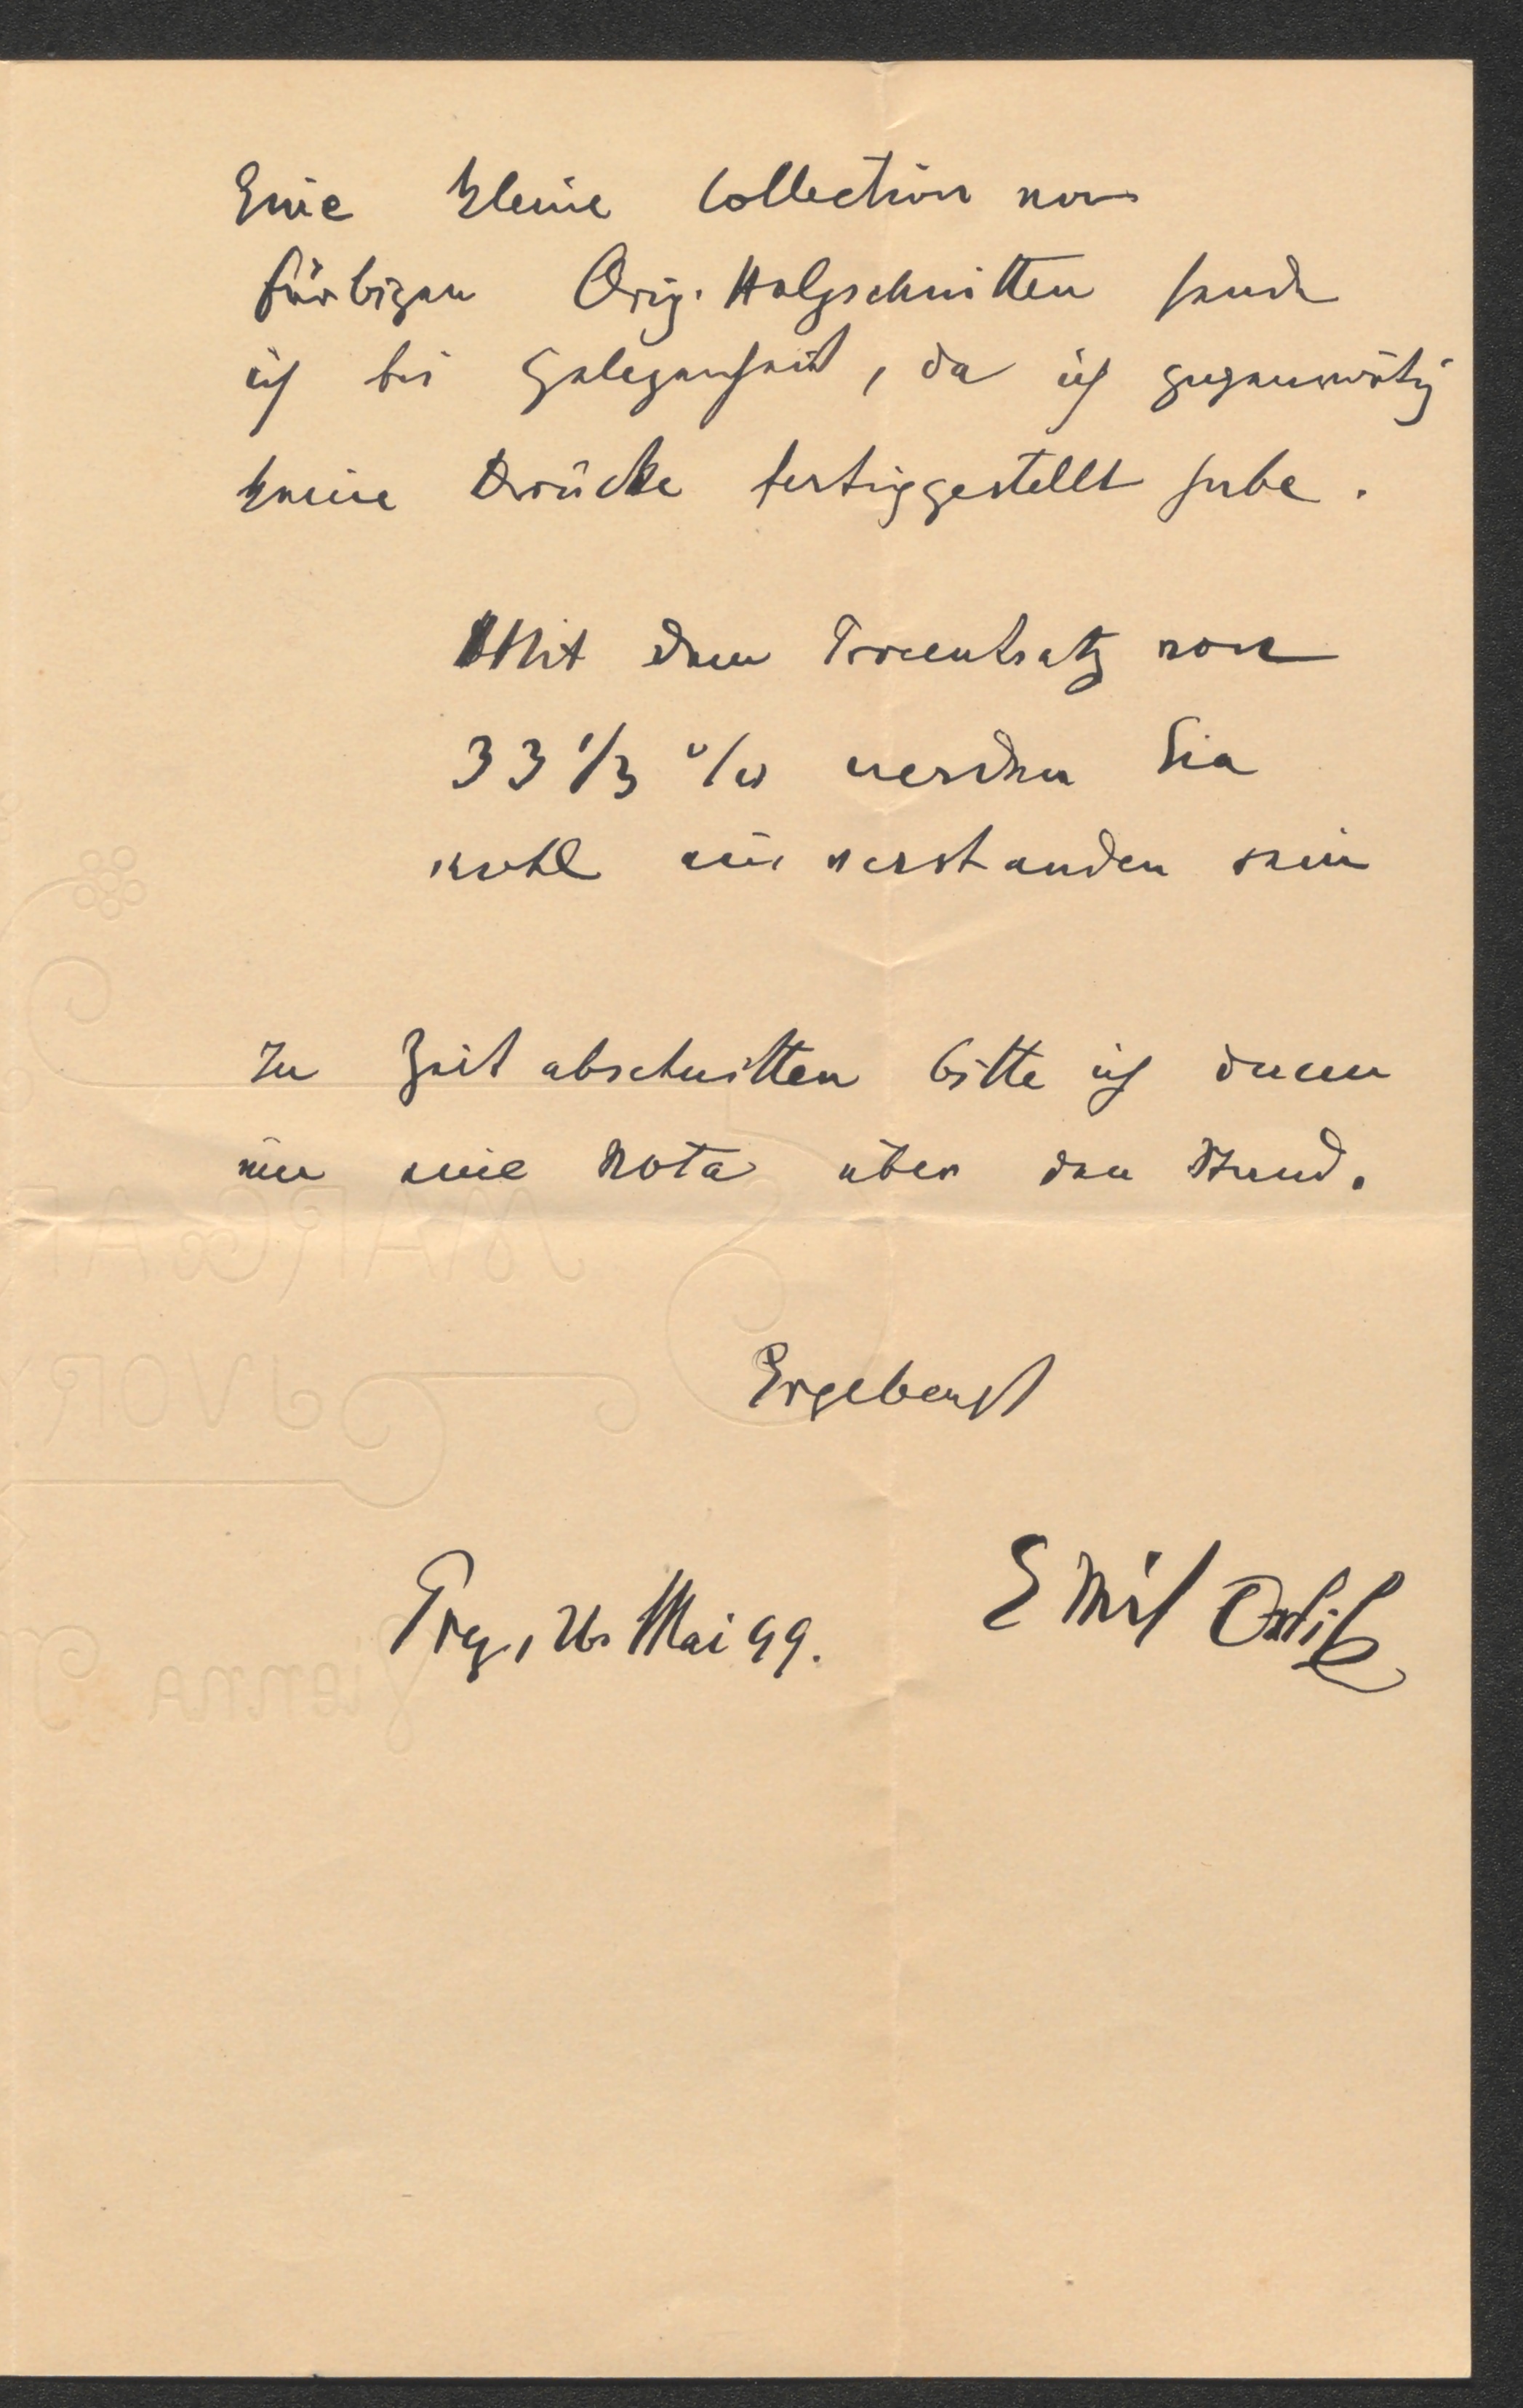 Eine kleine Collection von
färbigen Orig. Holzschnitten sende
ich bei Gelegenheit, da ich gegenwärtig
keine Drücke fertiggestellt habe.
Mit dem Procentsatz von
33 1/3 % werden Sie
wohl einverstanden sein
In Zeitabschnitten bitte ich dann
um eine Nota über den Stand.
Ergebenst
Prag, 26. Mai 99.
Emil Orlik